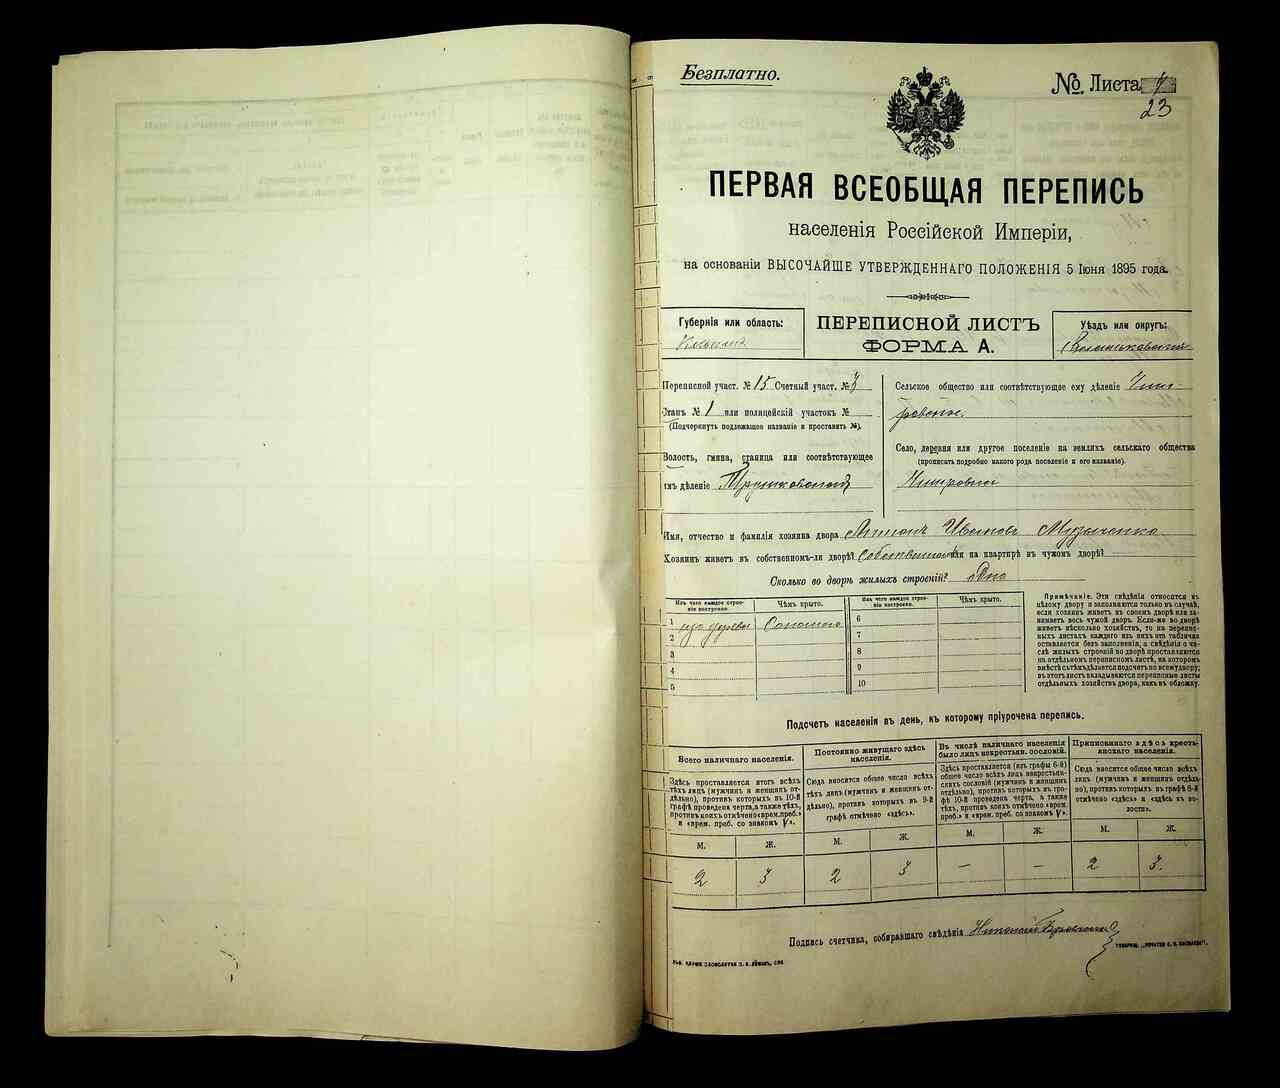 Безплатно.
№. Листа
23
ПЕРВАЯ ВСЕОБЩАЯ ПЕРЕПИСЬ
населенія Россійской Имперіи,
на основаніи ВЫСОЧАЙШЕ УТВЕРЖДЕННАГО ПОЛОЖЕНІЯ 5 Іюня 1895 года.
Губернія или область:
ПЕРЕПИСНОЙ ЛИСТЪ
ФОРМА А.
Уѣздъ или округъ:
Переписной участ. № 15 Счетный участ. №
Станъ № 1 или полицейскій участокъ №
(Подчеркнуть подлежащее названіе и проставить №).
Волость, гмина, станица или соотвѣтствующее
имъ дѣленіе
Сельское общество или соотвѣтствующее ему дѣленіе
Село, деревня или другое поселеніе на земляхъ сельскаго общества
(прописать подробно какого рода поселеніе и его названіе).
Имя, отчество и фамилія хозяина двора Антонъ Ивановъ Музыченко
Хозяинъ живетъ въ собственномъ-ли дворѣ? или на квартирѣ въ чужомъ дворѣ?
Сколько во дворѣ жилыхъ строеній? одно
Изъ чего каждое строе-
ніе построено.
Чѣмъ крыто.
Изъ чего каждое строе-
ніе построено.
Чѣмъ крыто.
1 изъ дерева Соломою
2
3
4
5
6
7
8
9
10
Примѣчаніе. Эти свѣдѣнія относятся къ
цѣлому двору и заполняются только въ случаѣ,
если хозяинъ живетъ въ своемъ дворѣ или за-
нимаетъ весь чужой дворъ. Если-же во дворѣ
живетъ нѣсколько хозяйствъ, то на перепис-
ныхъ листахъ каждаго изъ нихъ эта табличка
оставляется безъ заполненія, а свѣдѣнія о чи-
слѣ жилыхъ строеній во дворѣ проставляются
на отдѣльномъ переписномъ листѣ, на которомъ
вмѣстѣ съ тѣмъ дѣлается подсчетъ по всему двору;
въ этотъ листъ вкладываются переписные листы
отдѣльныхъ хозяйствъ двора, какъ въ обложку.
Подсчетъ населенія въ день, къ которому пріурочена перепись.
Всего наличнаго населенія.
Здѣсь проставляется итогъ всѣхъ
тѣхъ лицъ (мужчинъ и женщинъ от-
дѣльно), противъ которыхъ въ 10-й
графѣ проведена черта, а также тѣхъ,
противъ коихъ отмѣчено «врем. преб.»
и «врем. преб. со знакомъ V».
Постоянно живущаго здѣсь
населенія.
Сюда вносится общее число всѣхъ
тѣхъ лицъ (мужчинъ и женщинъ от-
дѣльно), противъ которыхъ въ 9-й
графѣ отмѣчено «здѣсь».
Въ числѣ наличнаго населенія
было лицъ некрестьян. сословій.
Здѣсь проставляется (изъ графы 8-й)
общее число всѣхъ лицъ некрестьян-
скихъ сословій (мужчинъ и женщинъ
отдѣльно), противъ которыхъ въ гра-
фѣ 10-й проведена черта, а также
тѣхъ, противъ коихъ отмѣчено «врем.
преб.» и «врем. преб. со знакомъ V».
Приписаннаго здѣсь кресть-
янскаго населенія.
Сюда вносится общее число всѣхъ
лицъ (мужчинъ и женщинъ отдѣль-
но), противъ которыхъ въ графѣ 8-й
отмѣчено «здѣсь» и «здѣсь въ во-
лости».
М. Ж. М. Ж. М. Ж. М. Ж.
2 3 2 3 — — 2 3.
Подпись счетчика, собиравшаго свѣдѣнія Николай